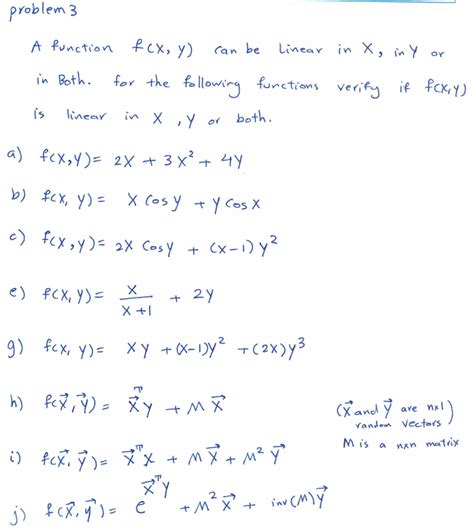 problem 3
A function f(x, y) can be Linear in X, in Y or
in Both. for the following functions verify if f(x,y)
is linear in X , Y or both.
a) f(x,y)= 2X + 3X² + 4Y
b) f(x, y) = X Cosy + Y Cosx
c) f(x,y)= 2X CosY + (X-1) Y²
e) f(x, y)= X/(X+1) + 2Y
g) f(x, y)= XY +(X-1)Y² +(2X)Y³
h) f(X⃗,Y⃗) = X⃗ᵀY + M X⃗
(X⃗ and Y⃗ are nx1
random vectors)
M is a nxn matrix
i) f(X⃗,Y⃗)= X⃗ᵀX + M X⃗ + M² Y⃗
j) f(X⃗,Y⃗)= e^(X⃗ᵀY) + M² X⃗ + inv(M)Y⃗